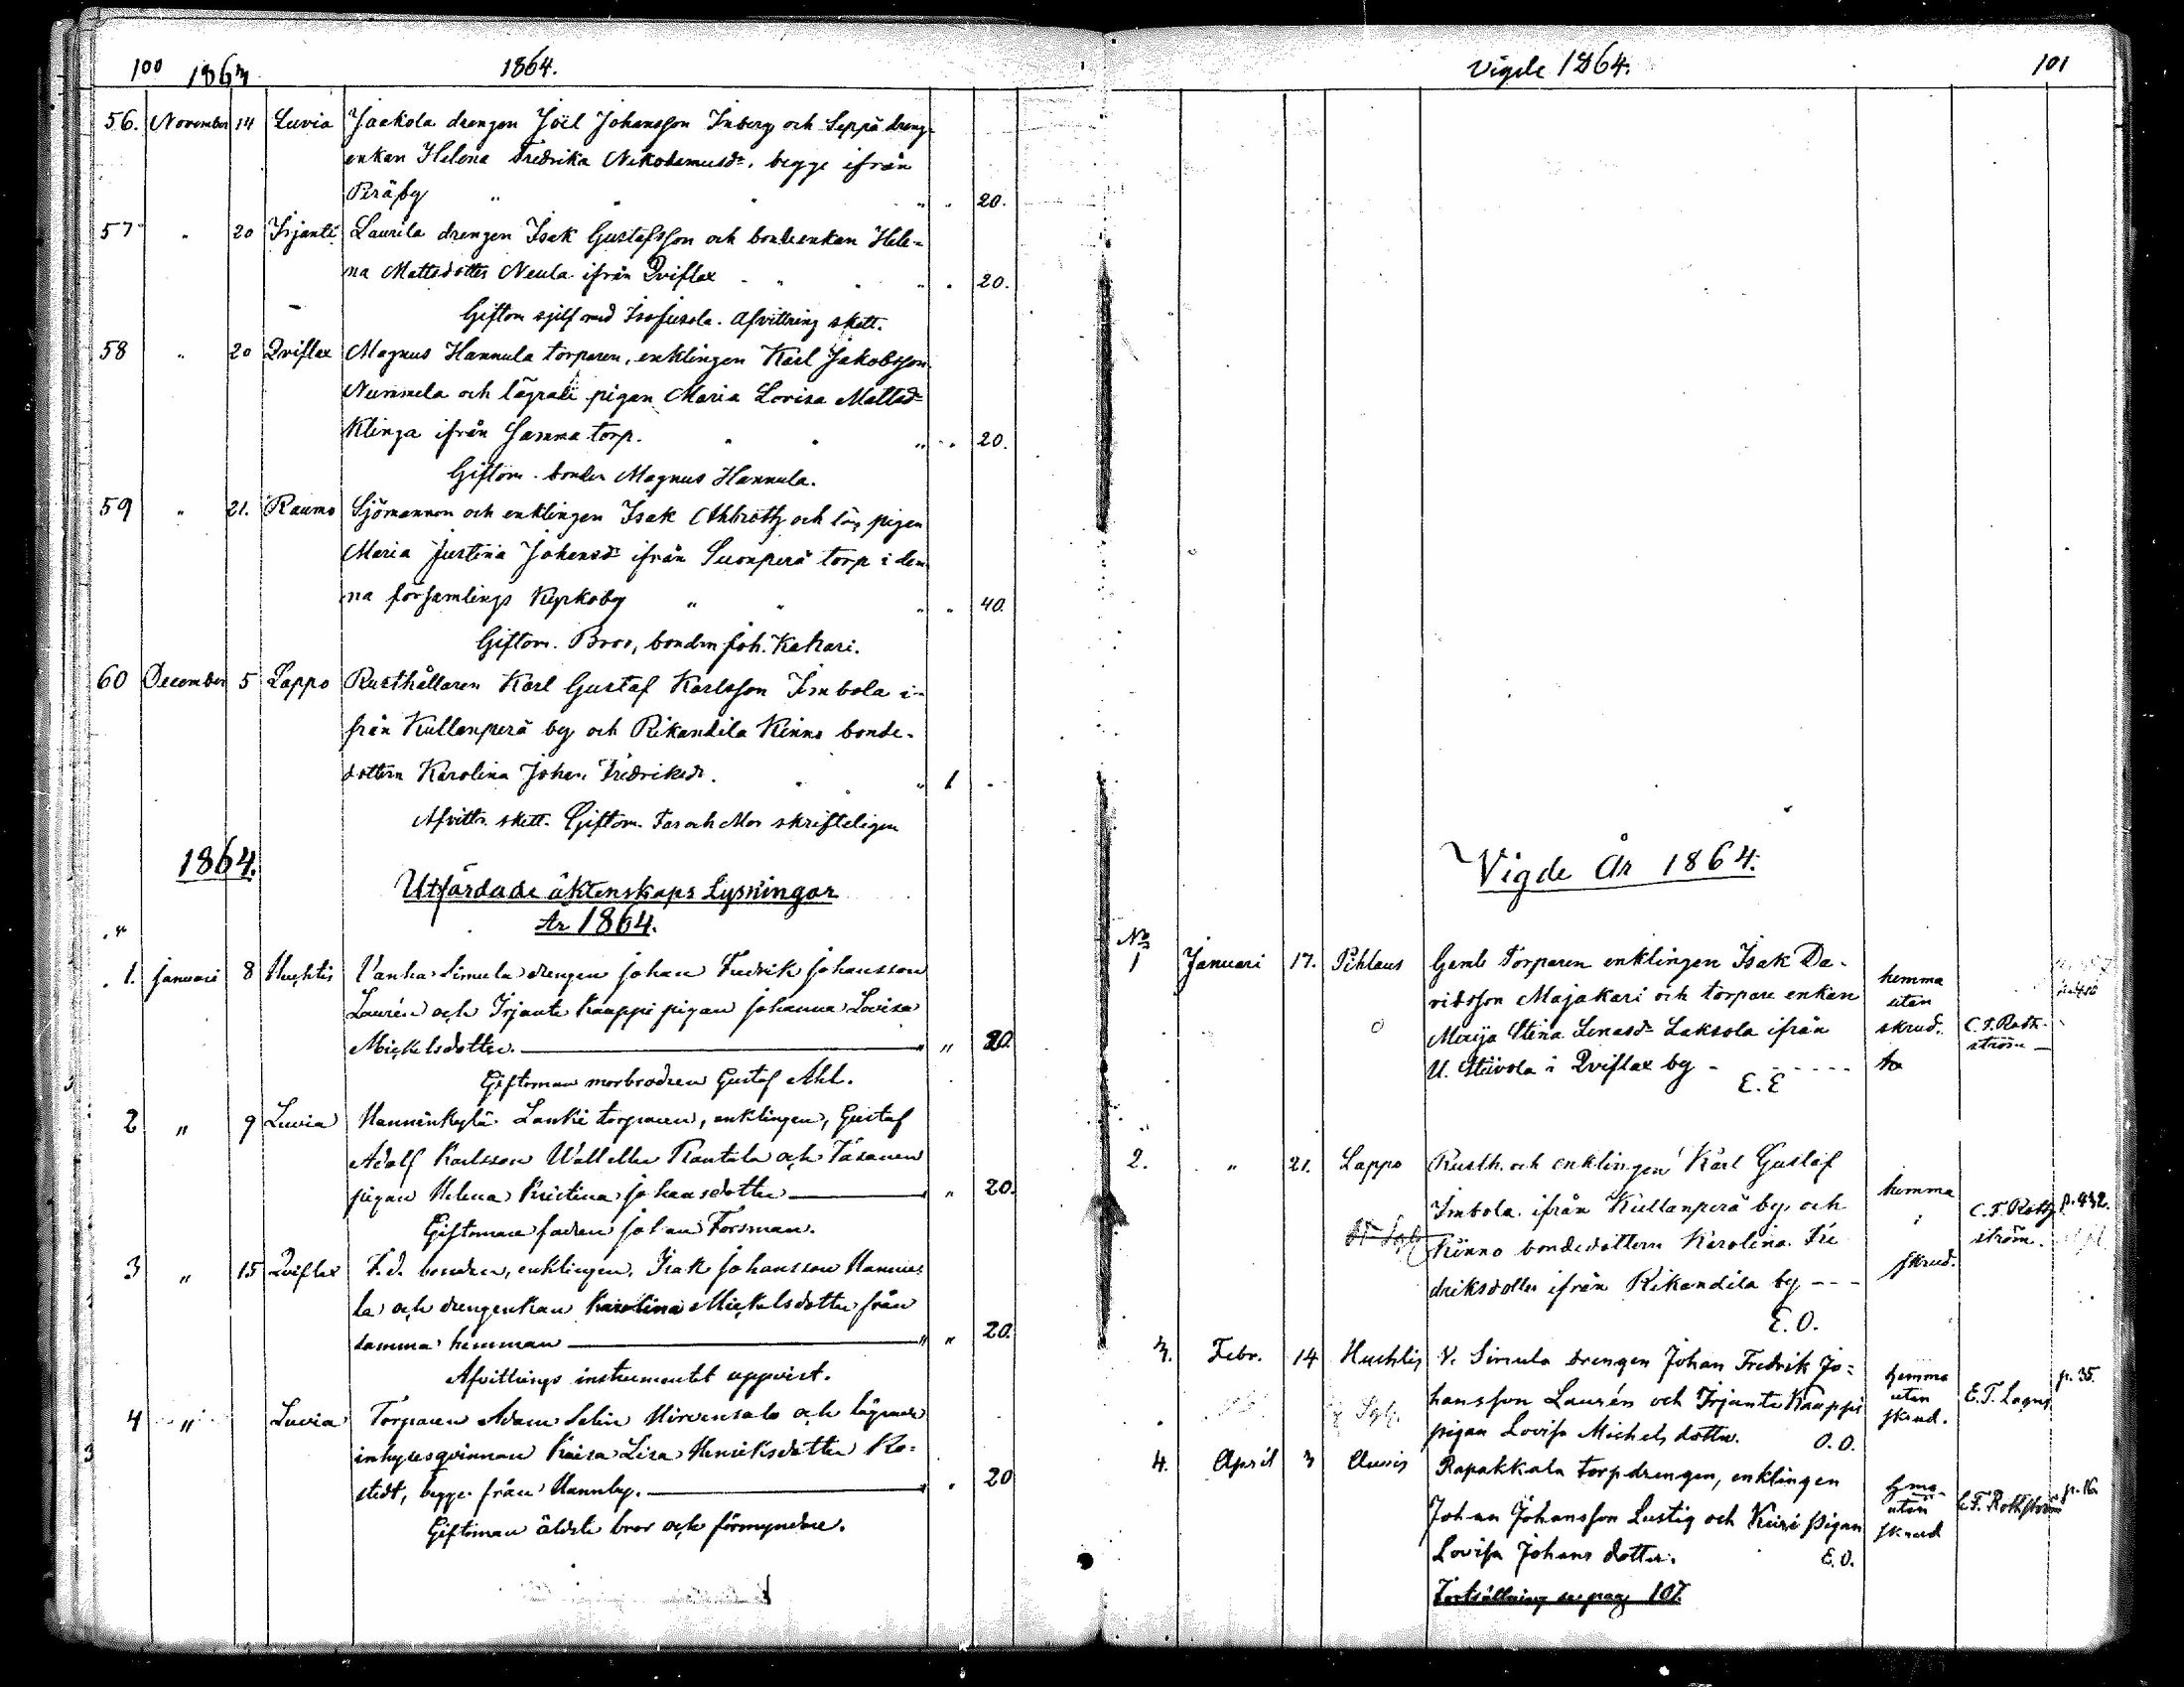 100 1863 1864.
56. November 14 Luvia Jaakola drengen Joël Johansson Inberg och Seppä dreng-
enkan Helena Fredrika Nikodemusdr. begge ifrån
Peräby " " " " 20.
57 " 20 Irjanti Laurila drengen Isak Gustafsson och bondeenkan Hele-
na Mattsdotter Neula ifrån Qviflax - " " " 20.
Giftom sjelf med Afvittring skett.
58 " 20 Qviflax Magnus Hannula torparen, enklingen Karl Jakobsson
Nummela och lägrade pigan Maria Lovisa Mattsdr
Klinga ifrån Samma torp. " " " 20.
Giftom. bonden Magnus Hannula.
59 " 21. Raumo Sjömannen och enklingen Isak och läg pigan
Maria Justina Johansdr ifrån Suonperä torp i den-
na församlings Kyrkoby " " " " 40.
Giftom. Bror, bonden Joh. Kakari.
60 December 5 Lappo Rusthållaren Karl Gustaf Karlsson Imbola i-
från Kullanperä by och Rikandila Kinno bonde-
dottern Karolina Johan Fredriksdr. " " 1 -
Afvittr. skett. Giftom. Far och Mor skrifteligen
1864.
Utfärdade äktenskaps Lysningar
År 1864.
1. Januari 8 Huhtis Vanha Simula drengen Johan Fredrik Johansson
Laurén och Irjante Kauppi pigan Johanna Lovisa
Mickelsdotter. " " 20.
Giftoman morbrodren Gustaf Ahl.
2 " 9 Luvia Hanninkylä Lanki torparen, enklingen, Gustaf
Adolf Karlsson Wall eller Rantala och Tasanen
pigan Helena Kristina Johansdotter " 20.
Giftoman fadren Johan Forsman.
3 " 15 Qviflax F.d. bonden, enklingen, Isak Johansson Hannu-
la och drengenkan Karolina Mickelsdotter från
samma hemman " " 20.
Afvittrings instrumentet uppvist.
4 " Luvia Torparen Adam Selin Hirvensalo och lägrade
inhysesqvinnan Kaisa Lisa Henriksdotter Ro-
stedt, begge från Hannby. " 20
Giftoman äldste bror och förmyndare.
Vigde 1864. 101
Vigde År 1864.
No
1 Januari 17. Pihlaus Gamle Torparen enklingen Isak Da-
vidsson Majakari och torpare enkan
Maija Stina Laksola ifrån
U. Stiivola i Qviflax by - - - - - -
E.E
hemma
utan
skrud.
C. F. Roth-
ström
2. " 21. Lappo Rusth. och enklingen Karl Gustaf
Imbola ifrån Kullanperä by, och
Kinno bondedottern Karolina Fre
driksdotter ifrån Rikandila by - - -
E.O.
hemma
i
skrud.
C. F. Roth-
ström.
p. 432.
3. Febr. 14 Huhtis V. Simula drengen Johan Fredrik Jo-
hansson Laurén och Irjante Kauppi
pigan Lovisa Michelsdotter. O.O.
hemma
utan
skrud.
E. T. Lagus
p. 35.
4. April 3 Anvis Rapakkala torpdrengen, enklingen
Johan Johansson Lustig och Kuiri pigan
Lovisa Johansdotter. E.O.
hema
utan
skrud
C. F. Rothström
p. 16
Fortsättning se pag 107.